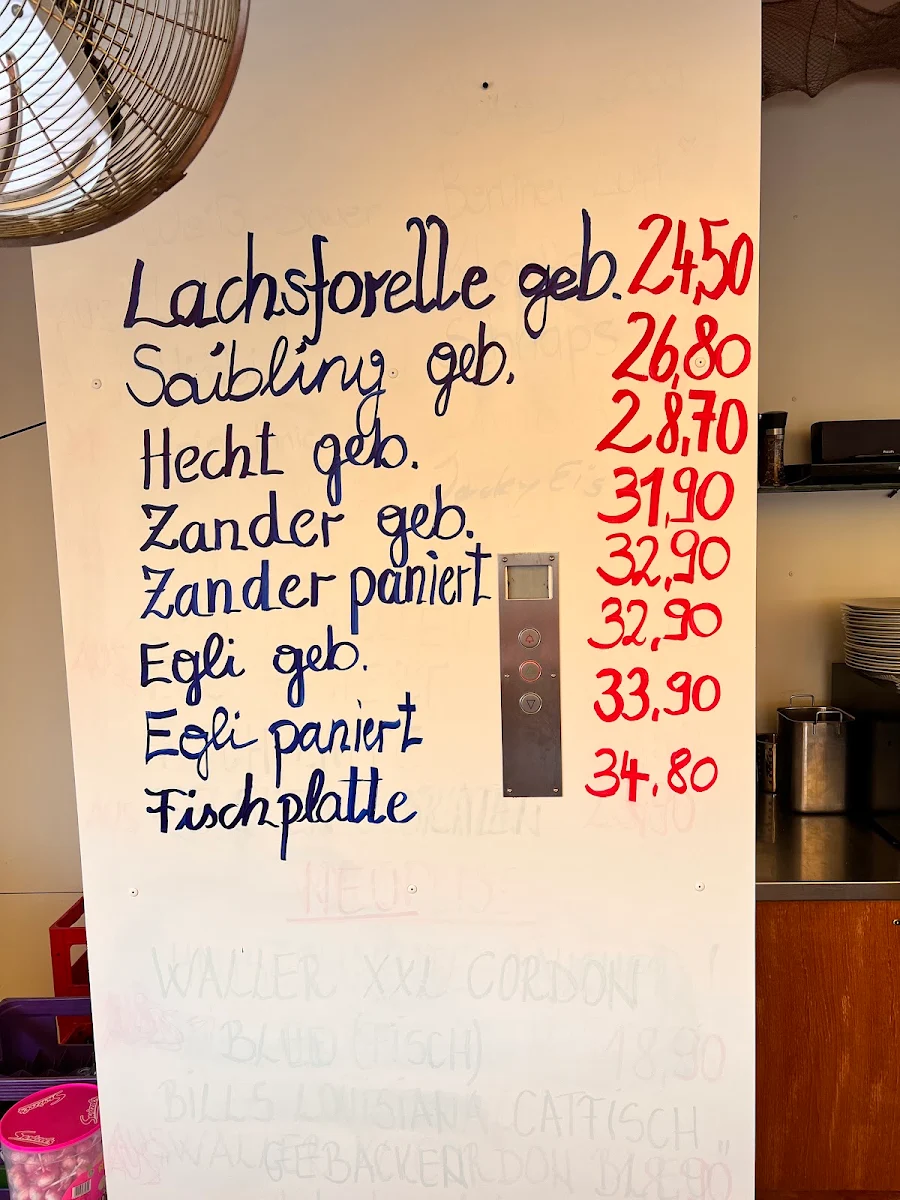 Lachsforelle geb. 24,50
Saibling geb. 26,80
Hecht geb. 28,70
Zander geb. 31,90
Zander paniert 32,90
Egli geb. 32,90
Egli paniert 33,90
Fischplatte 34,80
WALLER XXL CORDON
BLEU (FISCH) 18,90
BILLS LOUISIANA CATFISCH
GEBACKEN